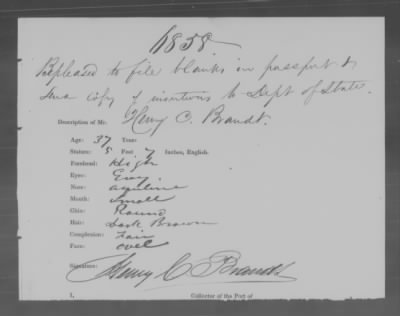 1838
Be pleased to file blanks in passport &
copy of insertions to Dept of State.
Description of Mr. Henry C. Brandt.
Age: 37 Years
Stature: 5 Feet 7 Inches, English.
Forehead: High
Eyes: Grey
Nose: aquiline
Mouth: Small
Chin: Round
Hair: Dark Brown
Complexion: Fair
Face: ovel
Signature: Henry C Brandt
I, Collector of the Port of